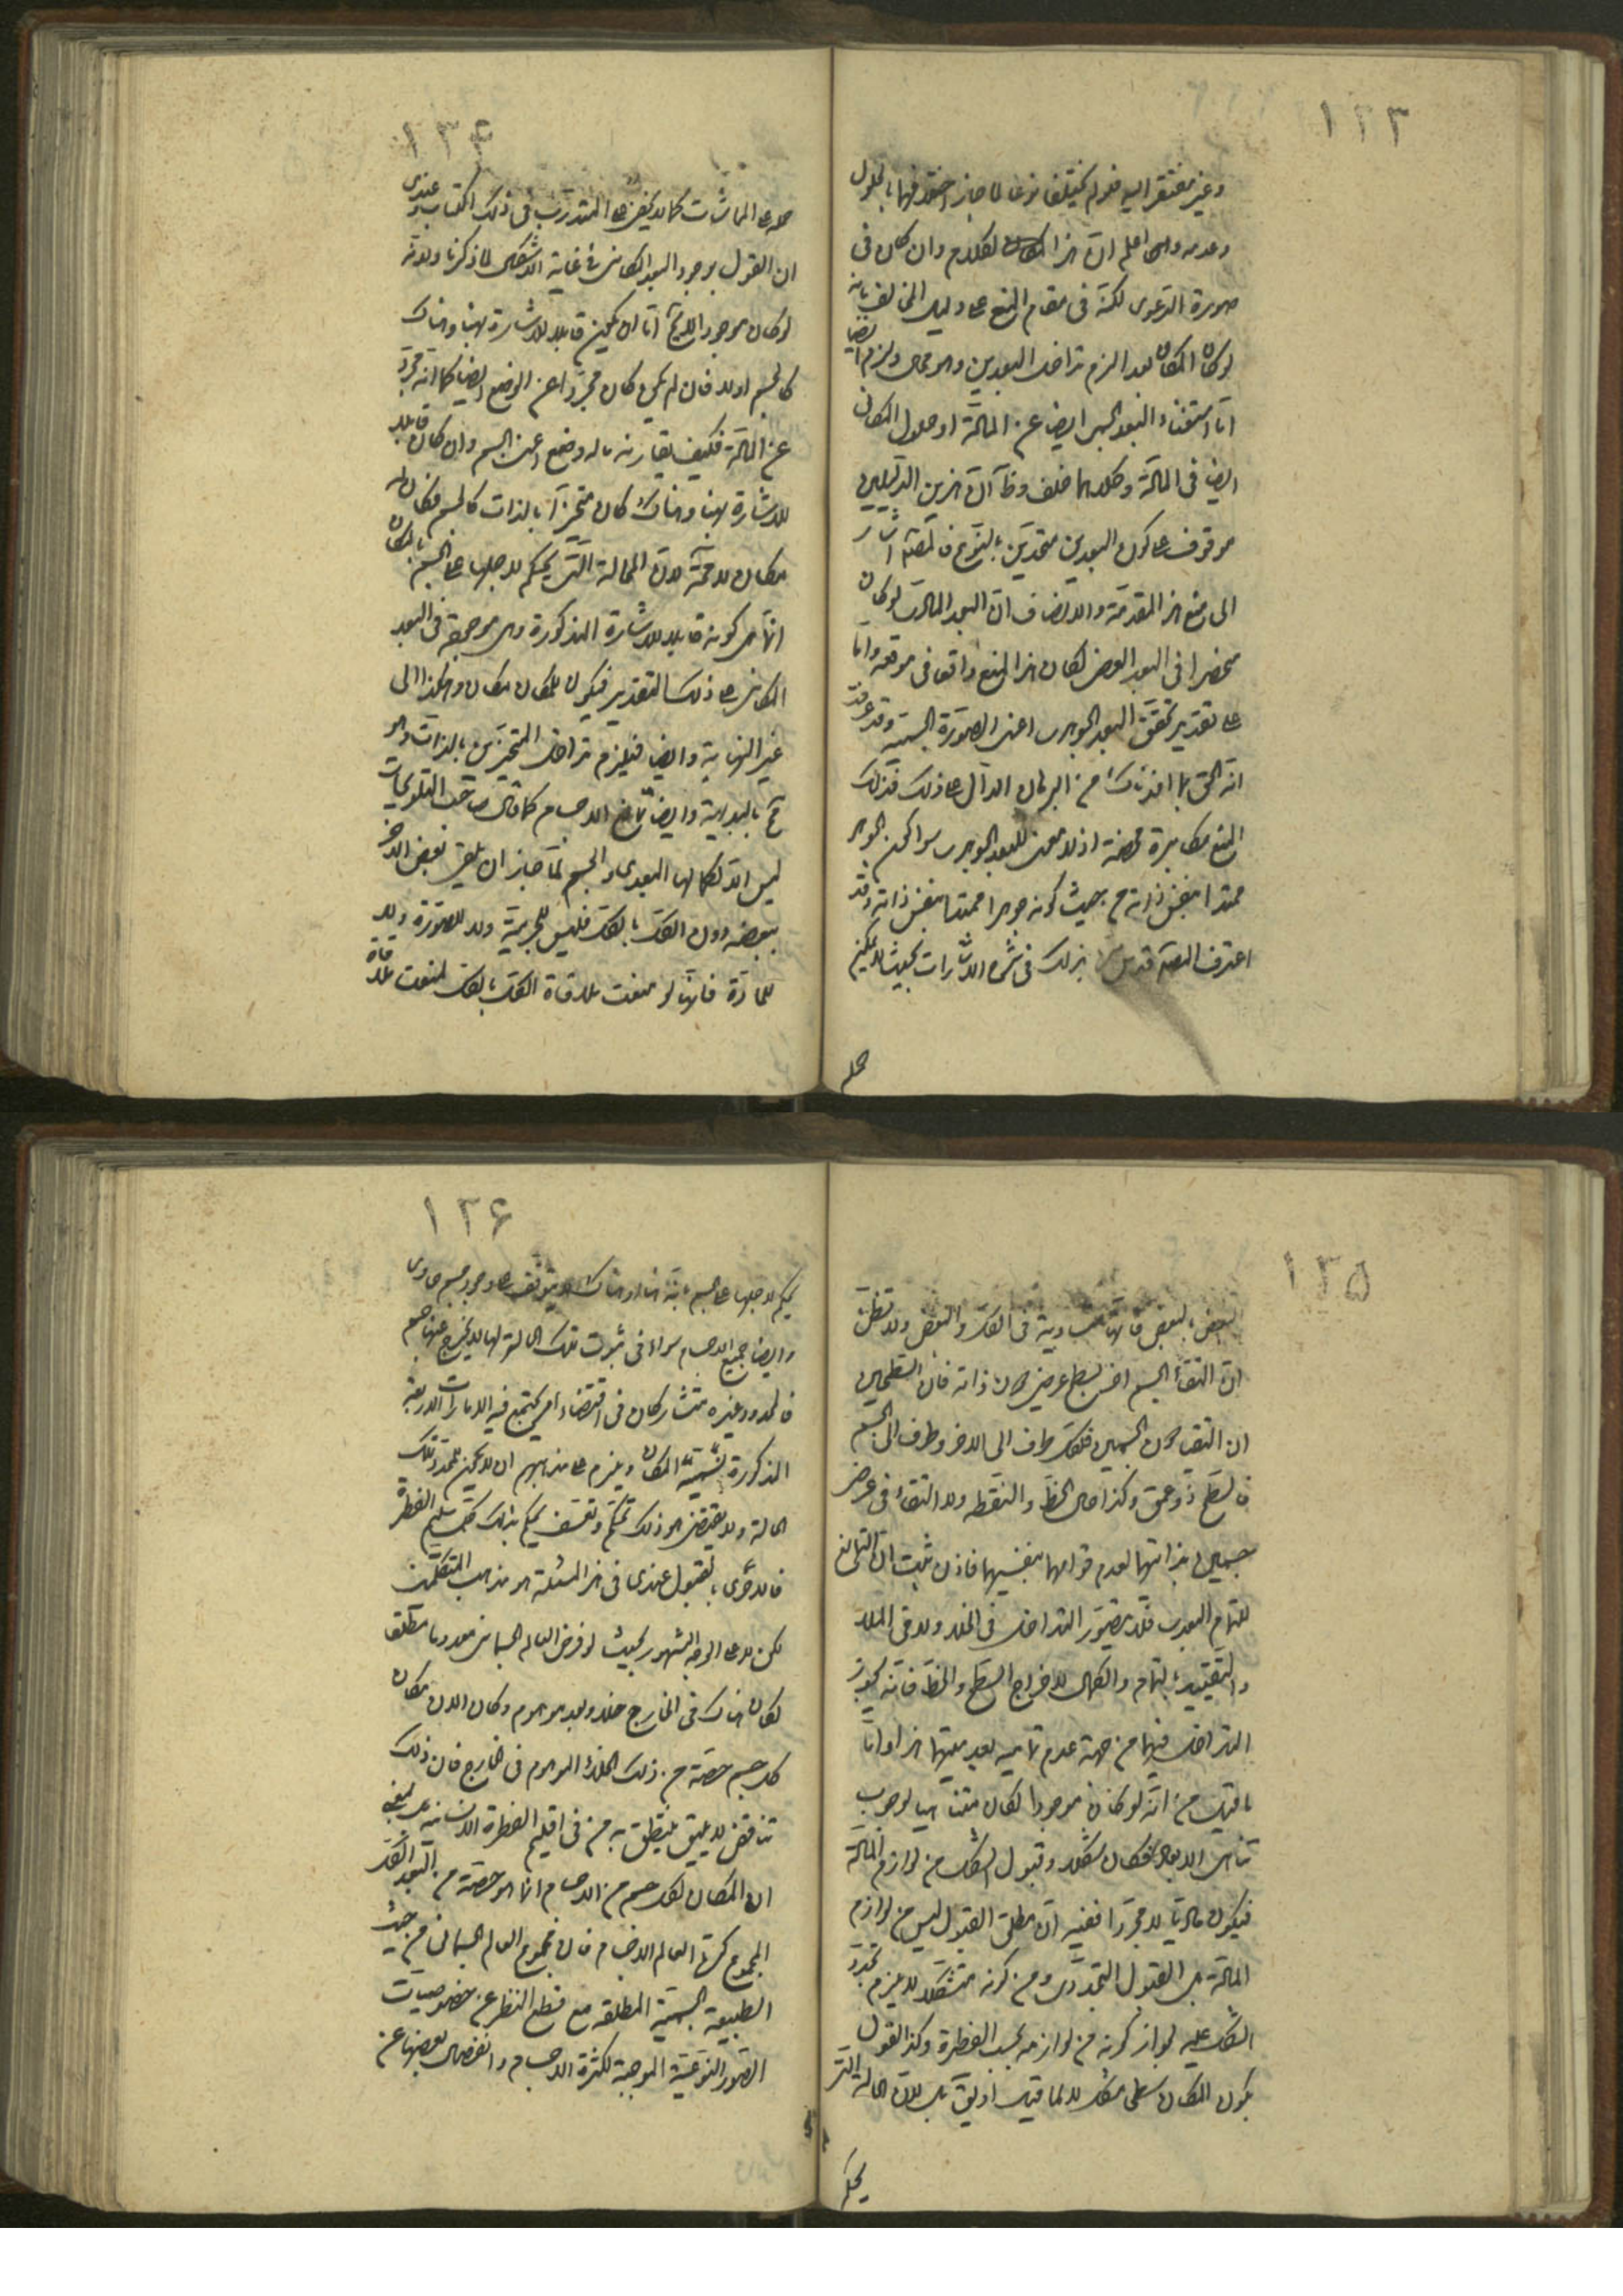 ١٣٣
وغير مفتقر اليه فلم يختلفا نوعا لما جاز اختلافهما بالحلول
وعدمه والله اعلم ان هذا الكلام وان كان فى
صورة الدعوى لكنه فى مقام المنع على دليل المخالف بانه
لو كان المكان بعدا لزم تداخل البعدين وهو محال ولزم ايضا
اما استغناء البعد الجسمى ايضا عن المادة او حلول المكان
ايضا فى المادة وكلاهما خلف وظ ان هذين الدليلين
موقوف على كون البعدين متحدين بالنوع فالمصنف اشار
الى منع هذه المقدمة والانصاف ان البعد المادى لو كان
منحصرا فى البعد العرضى لكان هذا المنع واقعا فى موقعه واما
على تقدير تحقق البعد الجوهرى اعنى الصورة الجسمية وقد عرفت
انه الحق بما افدناك من البرهان الدال على ذلك فذلك
المنع مكابرة محضة اذ لا معنى للبعد الجوهرى سوا كون الجوهر
ممتدا بنفس ذاته من حيث كونه جوهرا ممتدا بنفس ذاته وقد
اعترف المصنف قدس سره بذلك فى شرح الاشارات بحيث لا يمكن
حمله
١٣٤
حمله على المماشات كما لا يخفى على المتدرب فى ذلك الكتاب وعندى
ان القول بوجود البعد المكانى فى غاية الاشكال لما ذكرنا ولانه
لو كان موجودا فلا يخ اما ان يكون قابلا للاشارة بهنا وهناك
كالجسم او لا فان لم يكن كان مجردا عن الوضع ايضا كما انه مجرد
عن المادة فكيف يقارنه ما له وضع اعنى الجسم وان كان قابلا
للاشارة بهنا وهناك كان متحيزا بالذات كالجسم فكان له
مكان لا محة لان الحالة التى يحكم لاجلها على الجسم بالمكان
انما هى كونه قابلا للاشارة المذكورة وهى موجودة فى البعد
المكانى على ذلك التقدير فيكون للمكان مكان وهكذا الى
غير النهاية وايضا فيلزم تداخل المتحيزين بالذات وهو
مح بالبديهة وايضا تمانع الاجسام كما قال صاحب التلويحات
ليس الا لكمالها البعدى والجسم لما جاز ان يلاقى بعض الاخر
ببعضه دون الكل بالكل فليس للجرمية ولا للصورة ولا
للمادة فانها لو منعت ملاقاة الكل بالكل لمنعت ملاقاة
١٣٥
البعض بالبعض فانها متساوية فى الكل والبعض ولا تظن
ان التقاء الجسم اخر بسطح عرضى دون ذاته فان السطحين
ان التقيا دون الجسمين فلكل طرف الى الاخر وطرف الى الجسم
فالسطح ذو عمق وكذا حال الخط والنقطه ولا التقاء فى عرض
جسمين لا بذاتيهما لعدم قوامهما بنفسيهما فاذن ثبت ان التمانع
للتمام البعدى فلا يتصور التداخل فى الخلاء ولا فى الملاء
والتقييد بالتمام والكمال لاخراج السطح والخط فانه يجوز
التداخل فيهما من جهة عدم تمامية بعديتهما هذا واما
ما قيل من انه لو كان موجودا لكان متناهيا لوجوب
تناهى الابعاد فكان مشكلا وقبول الشكل من لوازم المادة
فيكون ماديا لا مجردا ففيه ان مطلق القبول ليس من لوازم
المادة بل القبول التجددى ومن كونه متشكلا لا يلزم تجدد
الشكل عليه لجواز كونه من لوازمه بحسب الفطرة وكذا القول
بكون المكان سطحى مشكل لا لما قيل او يق بل لان الحالة التى
يحكم
١٣۶
يحكم لاجلها على الجسم بانه هنا او هناك لا يتوقف على وجود جسم حاوى
وايضا جميع الاجسام سواء فى ثبوت تلك الحالة لها لا يخرج عنها جسم
فالمحدود وغيره متشاركان فى اقتضاء امر يجتمع فيه الامارات الاربعة
المذكورة بتسمية المكان ويلزم على مذهبهم ان لا يكون للمحدد تلك
الحالة ولا يقتضى هو ذلك تحكم وتعسف يحكم بذلك كل سليم الفطرة
فالاحرى بالقبول عندى فى هذا المسئلة هو مذهب المتكلمين
لكن لا على الوجه المشهور بحيث لو فرض العالم الجسمانى معدوما مطلقا
لكان هناك فى الخارج خلاء وبعد موهوم وكان الان مكان
كل جسم حصة من ذلك الخلاء الموهوم فى الخارج فان ذلك
تناقض لا يليق ينطق به من فى اقليم الفطرة الانسانية بل بمعنى
ان المكان لكل جسم من الاجسام انما هو حصة من البعد الكل
المجموع كرة العالم الاجسام فان مجموع العالم الجسمانى من حيث
الطبيعة الجسمية المطلقه مع قطع النظر عن خصوصيات
الصور النوعية الموجبة لكثرة الاجسام وانفصال بعضها عن